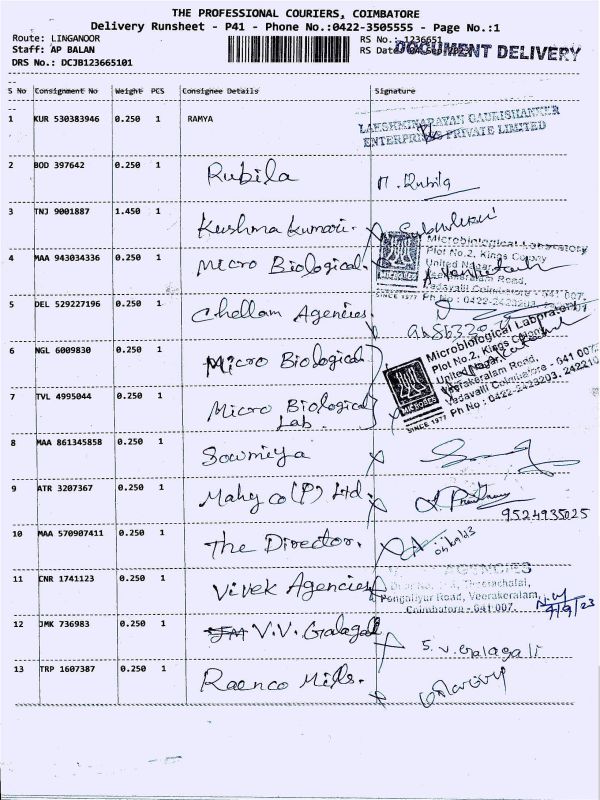 THE PROFESSIONAL COURIERS, COIMBATORE
Delivery Runsheet - P41 - Phone No.:0422-3505555 - Page No.:1
Route: LINGANOOR
RS No.: 1236651
Staff: AP BALAN
RS Date:
DOCUMENT DELIVERY
DRS No.: DCJB123665101
S No Consignment No Weight PCS Consignee Details Signature
1 KUR 530383946 0.250 1 RAMYA
LAKSHMINARAYAN GAURISHANKER
ENTERPRISES PRIVATE LIMITED
2 BOD 397642 0.250 1 Rubila M. Rubila
3 TNJ 9001887 1.450 1 Kushma Kumari.
4 MAA 943034336 0.250 1 Micro Biological.
Microbiological Laboratory
Plot No.2, Kings Colony
United Nagar,
Veerakeralam Road,
Vadavalli Coimbatore - 641 007.
SINCE 1977
5 DEL 529227196 0.250 1 Chellam Agencies.
6 NGL 6009830 0.250 1 Micro Biological
Microbiological Laboratory
Plot No.2, Kings Colony
United Nagar
Veerakeralam Road,
Vadavalli Coimbatore - 641 007
Ph No : 0422-2423203,
SINCE 1977
7 TVL 4995044 0.250 1 Micro Biological
Lab.
8 MAA 861345858 0.250 1 Sowmiya
9 ATR 3207367 0.250 1 Mahyco (P) Ltd.
9524935025
10 MAA 570907411 0.250 1 The Director.
11 CNR 1741123 0.250 1 Vivek Agencies
AGENCIES
Pongaliyur Road, Veerakeralam,
Coimbatore - 641 007.
4/9/23
12 JMK 736983 0.250 1 V.V. Galagali S. V. Galagali
13 TRP 1607387 0.250 1 Raenco Mills.